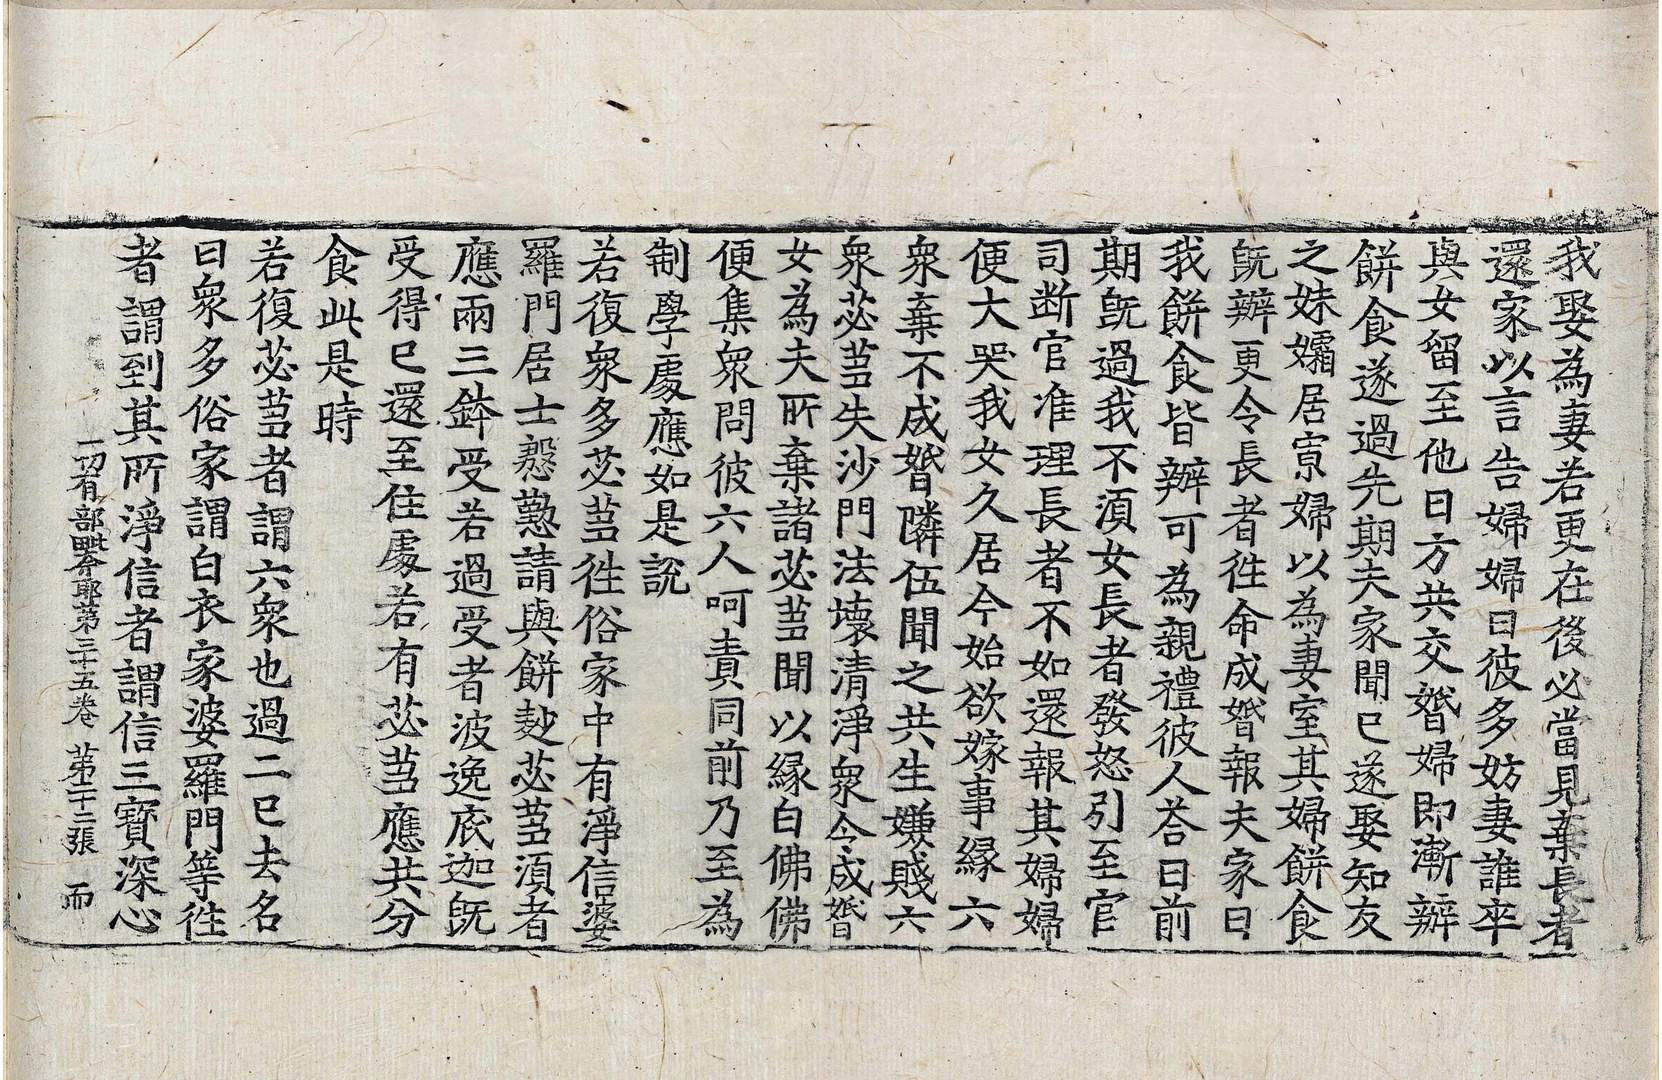 我娶為妻若更在後必當見棄長者
還家以言告婦婦曰彼多妨妻誰卒
與女留至他日方共交婚婦即漸辦
餅食遂過先期夫家聞已遂娶知友
之妹孀居寡婦以為妻室其婦餅食
旣辦更令長者徃命成婚報夫家曰
我餅食皆辦可為親禮彼人荅曰前
期旣過我不須女長者發怒引至官
司断官准理長者不如還報其婦婦
便大哭我女久居今始欲嫁事緣六
衆棄不成婚隣伍聞之共生嫌賤六
衆苾芻失沙門法壞清淨衆今成婚
女為夫所棄諸苾芻聞以縁白佛佛
便集衆問彼六人呵責同前乃至為
制學處應如是說
若復衆多苾芻徃俗家中有淨信婆
羅門居士慇懃請與餅麨苾芻須者
應兩三鉢受若過受者波逸底迦旣
受得已還至住處若有苾芻應共分
食此是時
若復苾芻者謂六衆也過二已去名
曰衆多俗家謂白衣家婆羅門等徃
者謂到其所淨信者謂信三寳深心
一切有部毗奈耶第三十五卷 第十二張 而